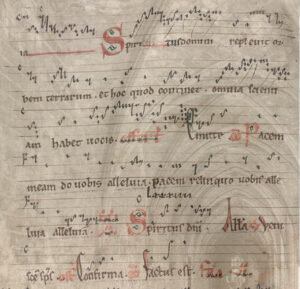 ia Spiritus domini repleuit or
bem terrarum. et hoc quod continet. omnia scienti
am habet uocis. Emitte Pacem
meam do uobis alleluia. pacem relinquo uobis alle
luia alleluia. Spiritus dni. Alla Veni
Confirma. Factus est.